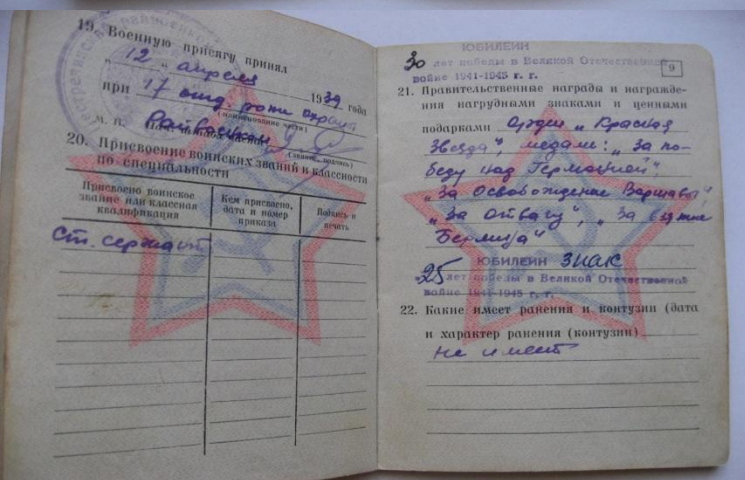 19. Военную присягу принял
„ 12 „ апреля 1939 года
при 17 отд. роти охрана
(наименование части)
М. П. Райвоенком
20. Присвоение воинских званий и классности
по специальности
Присвоено воинское звание или классная квалификация
Кем присвоено, дата и номер приказа
Подпись и печать
Ст. сержант
ЮБИЛЕЙН
30 лет победы в Великой Отечественной
войне 1941-1945 г. г.
9
21. Правительственные награды и награжде-
ния нагрудными знаками и ценными
подарками Орден „Красная
Звезда", медали: „За по-
беду над Германией"
„За Освобождение Варшавы",
„За отвагу", „За взятие
Берлина"
ЮБИЛЕЙН ЗНАК
25 лет победы в Великой Отечественной
войне 1941-1945 г. г.
22. Какие имеет ранения и контузии (дата
и характер ранения (контузии)
не имеет